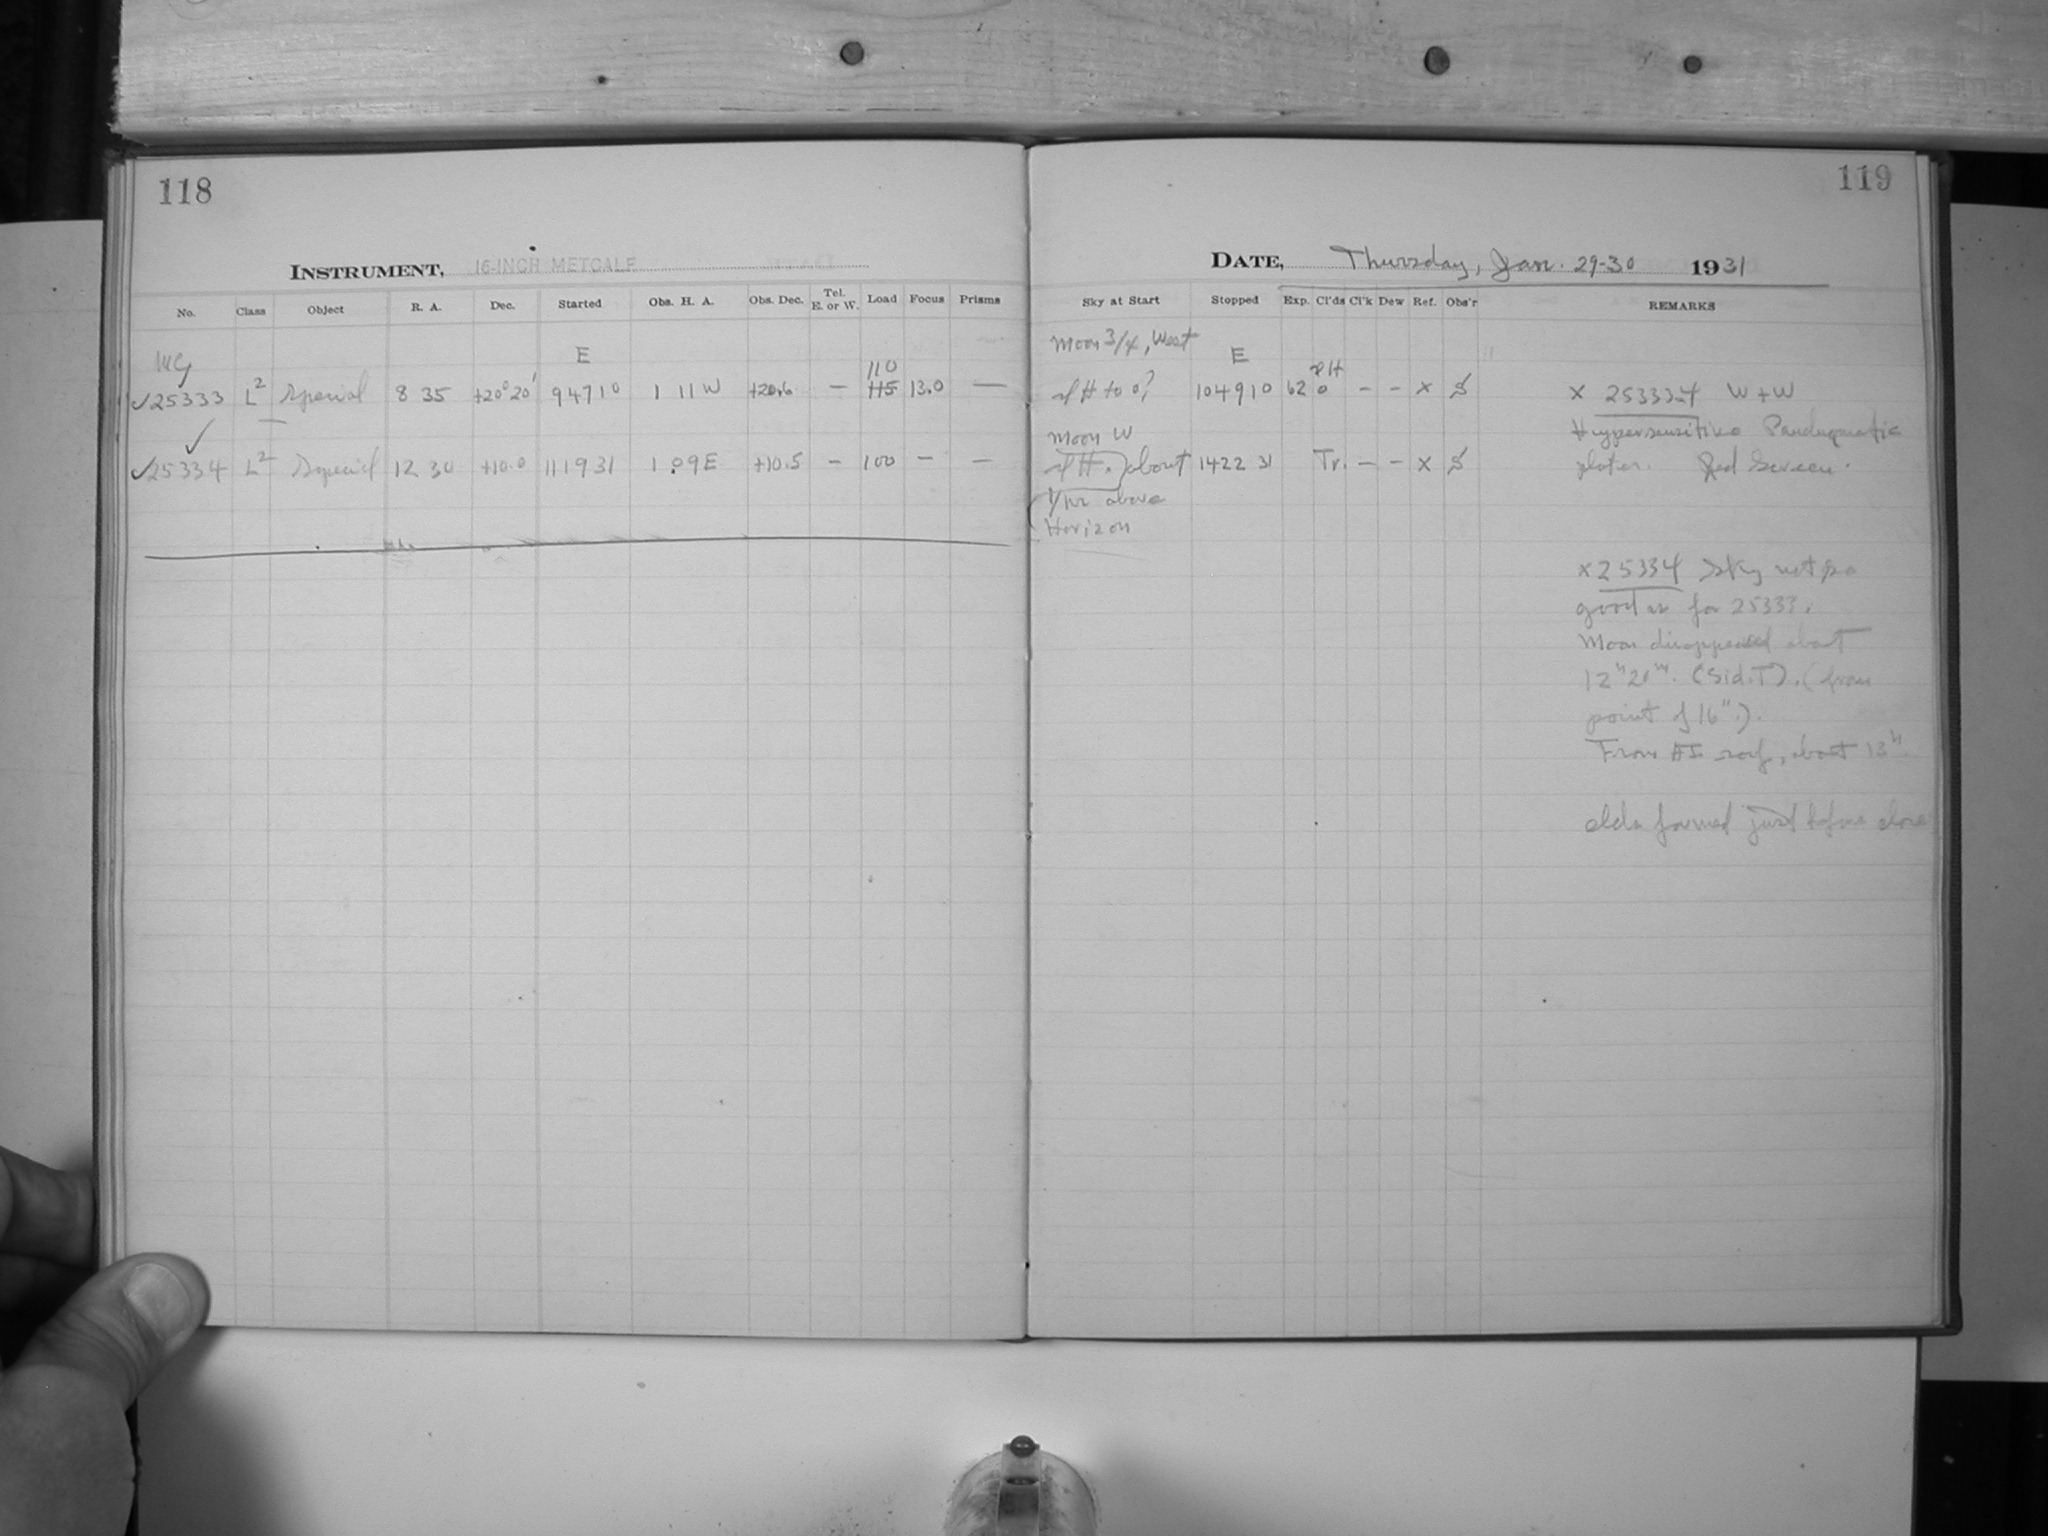 118
119
INSTRUMENT, 16-INCH METCALF
DATE, Thursday, Jan. 29-30 1931
No. Class Object R. A. Dec. Started Obs. H. A. Obs. Dec. Tel. E. or W. Load Focus Prisms
Sky at Start Stopped Exp. Cl'ds Cl'k Dew Ref. Obs'r REMARKS
Moon 3/4, West
MC E 110 E
✓25333 L² Special 8 35 +20°20' 94710 1 11W +20.6 — 115 13.0 —
to 0? 104910 62 0 — — x
x 25333-4 W + W
Hypersensitive Panchromatic
Moon W
✓
✓25334 L² Special 12 30 +10.0 111931 1 09E +10.5 — 100 — —
about 142231 Tr. — — x
plates. Red Screen.
1/hr above
Horizon
x 25334 Sky not so
good as for 25333.
Moon disappeared about
12ʰ20ᵐ. (Sid.T). (from
point of 16").
From roof, about 13ʰ.
clds formed just before close